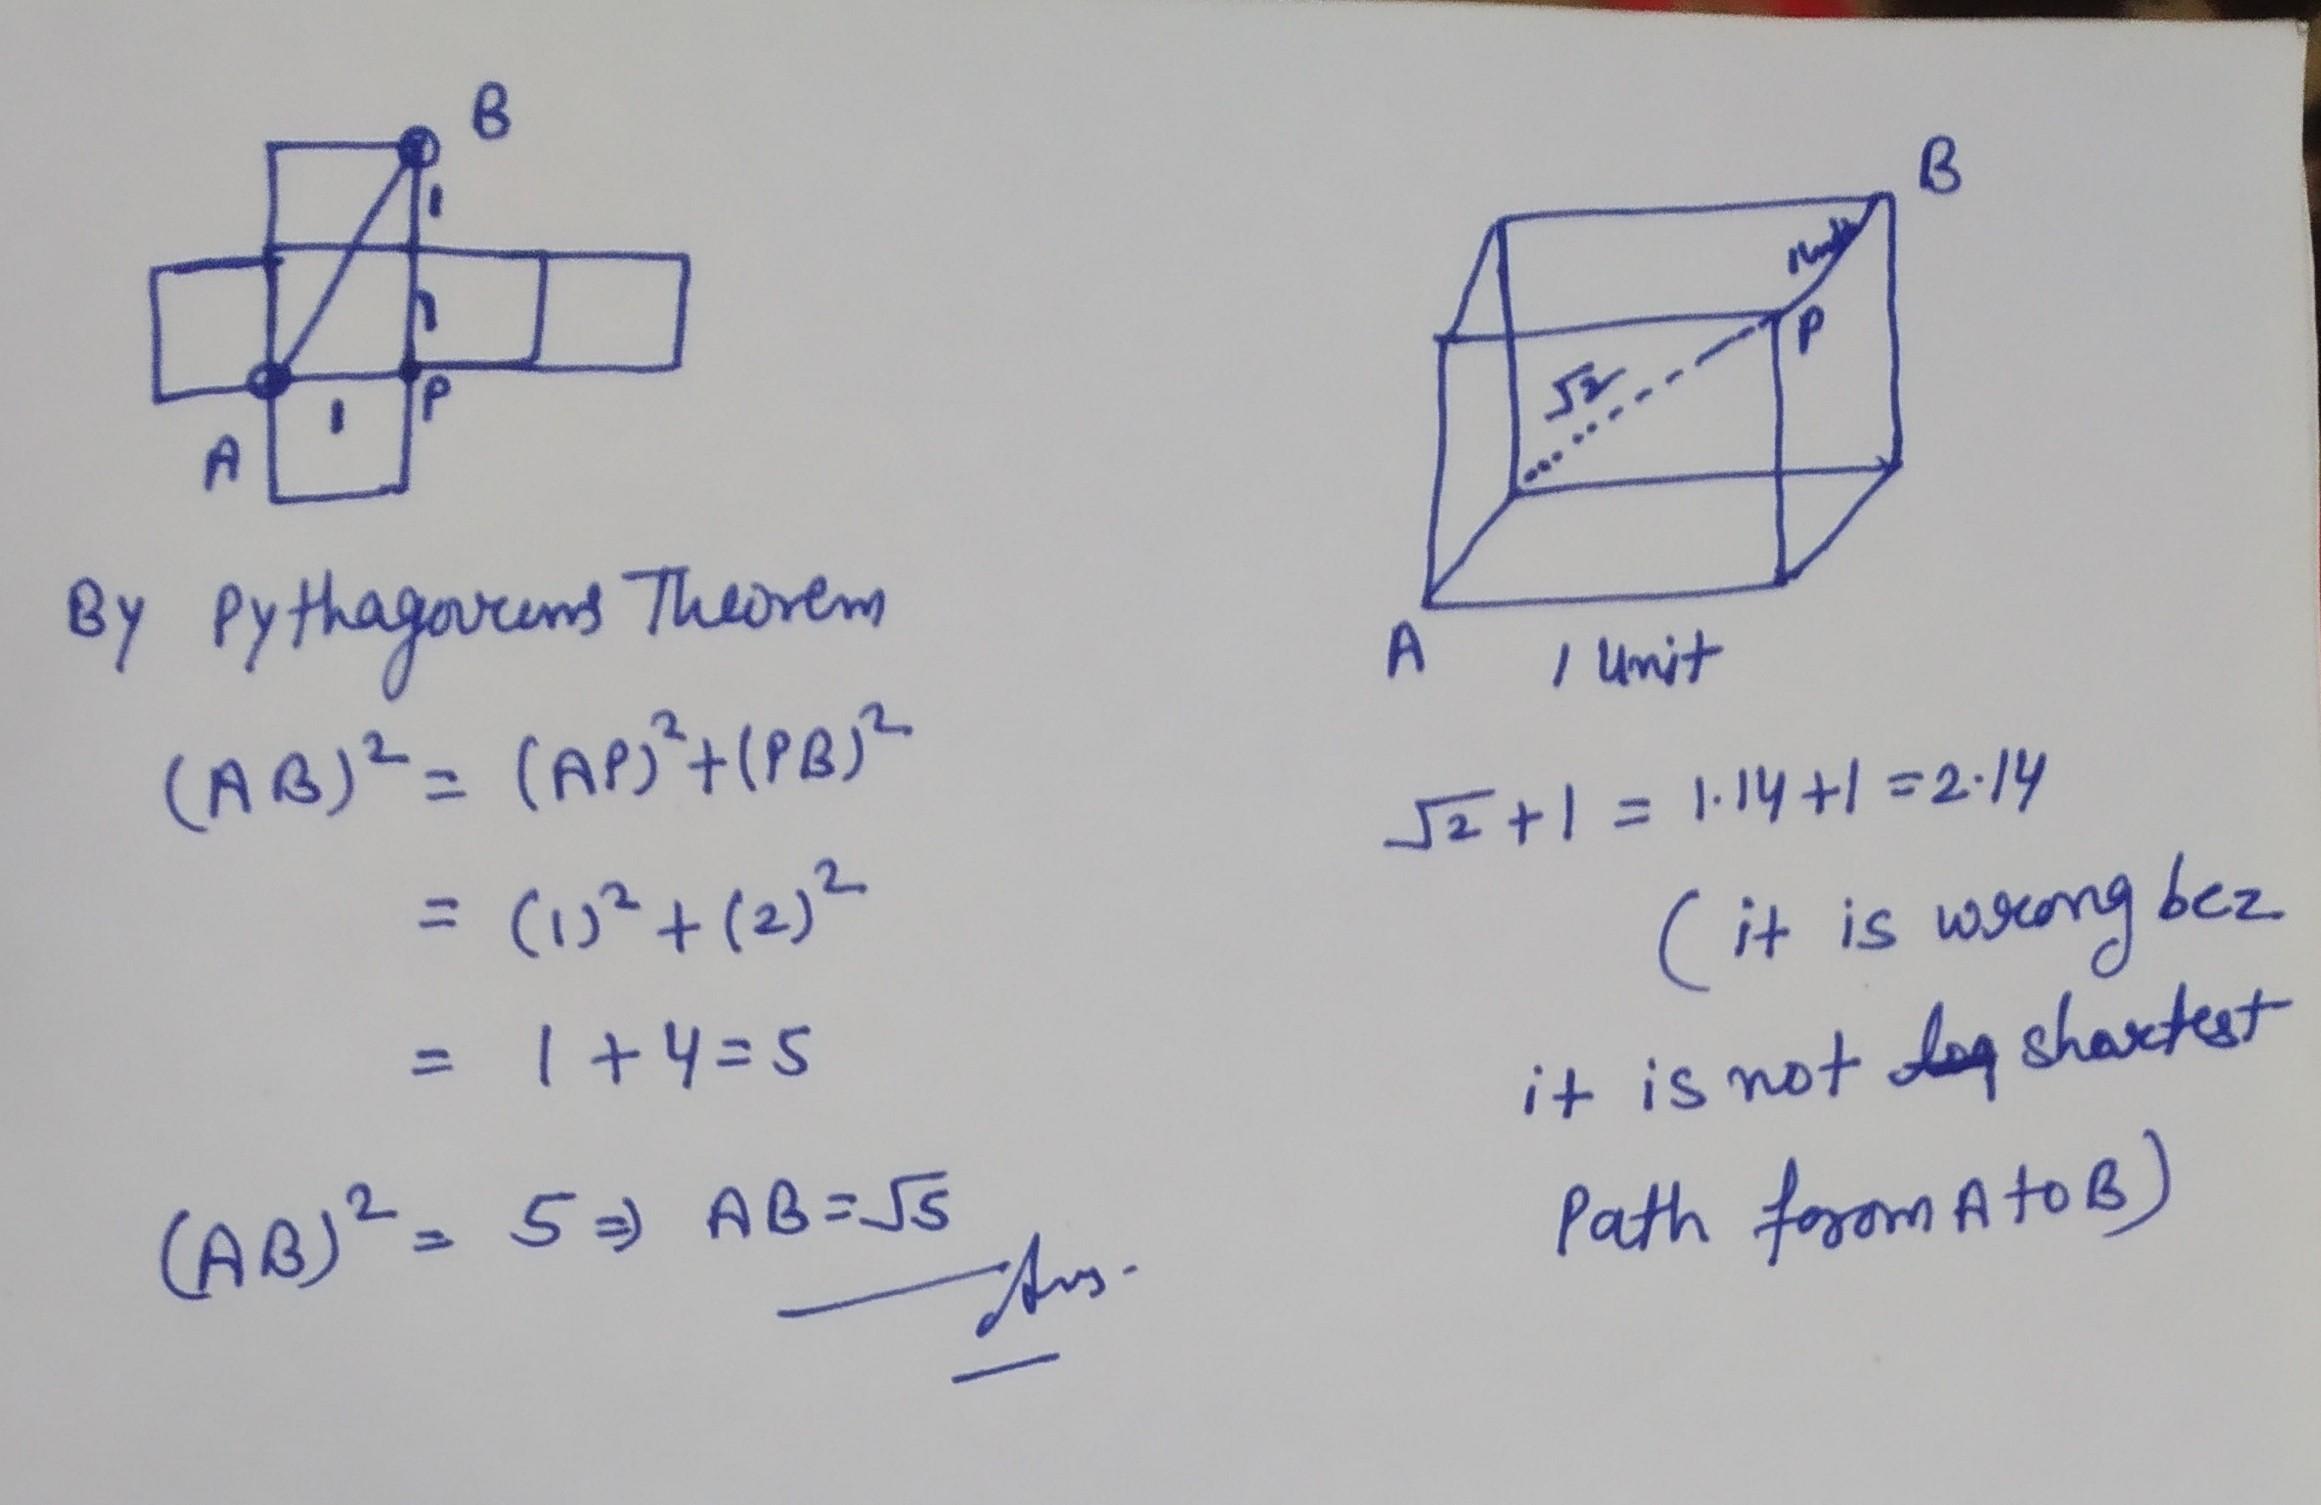 B
1
1
P
1
A
By Pythagoreums Theorem
(AB)² = (AP)² + (PB)²
= (1)² + (2)²
= 1 + 4 = 5
(AB)² = 5 ⇒ AB = √5
Ans.
B
1 unit
P
√2
A 1 Unit
√2 + 1 = 1.14 + 1 = 2.14
(it is wrong bcz
it is not shortest
Path from A to B)